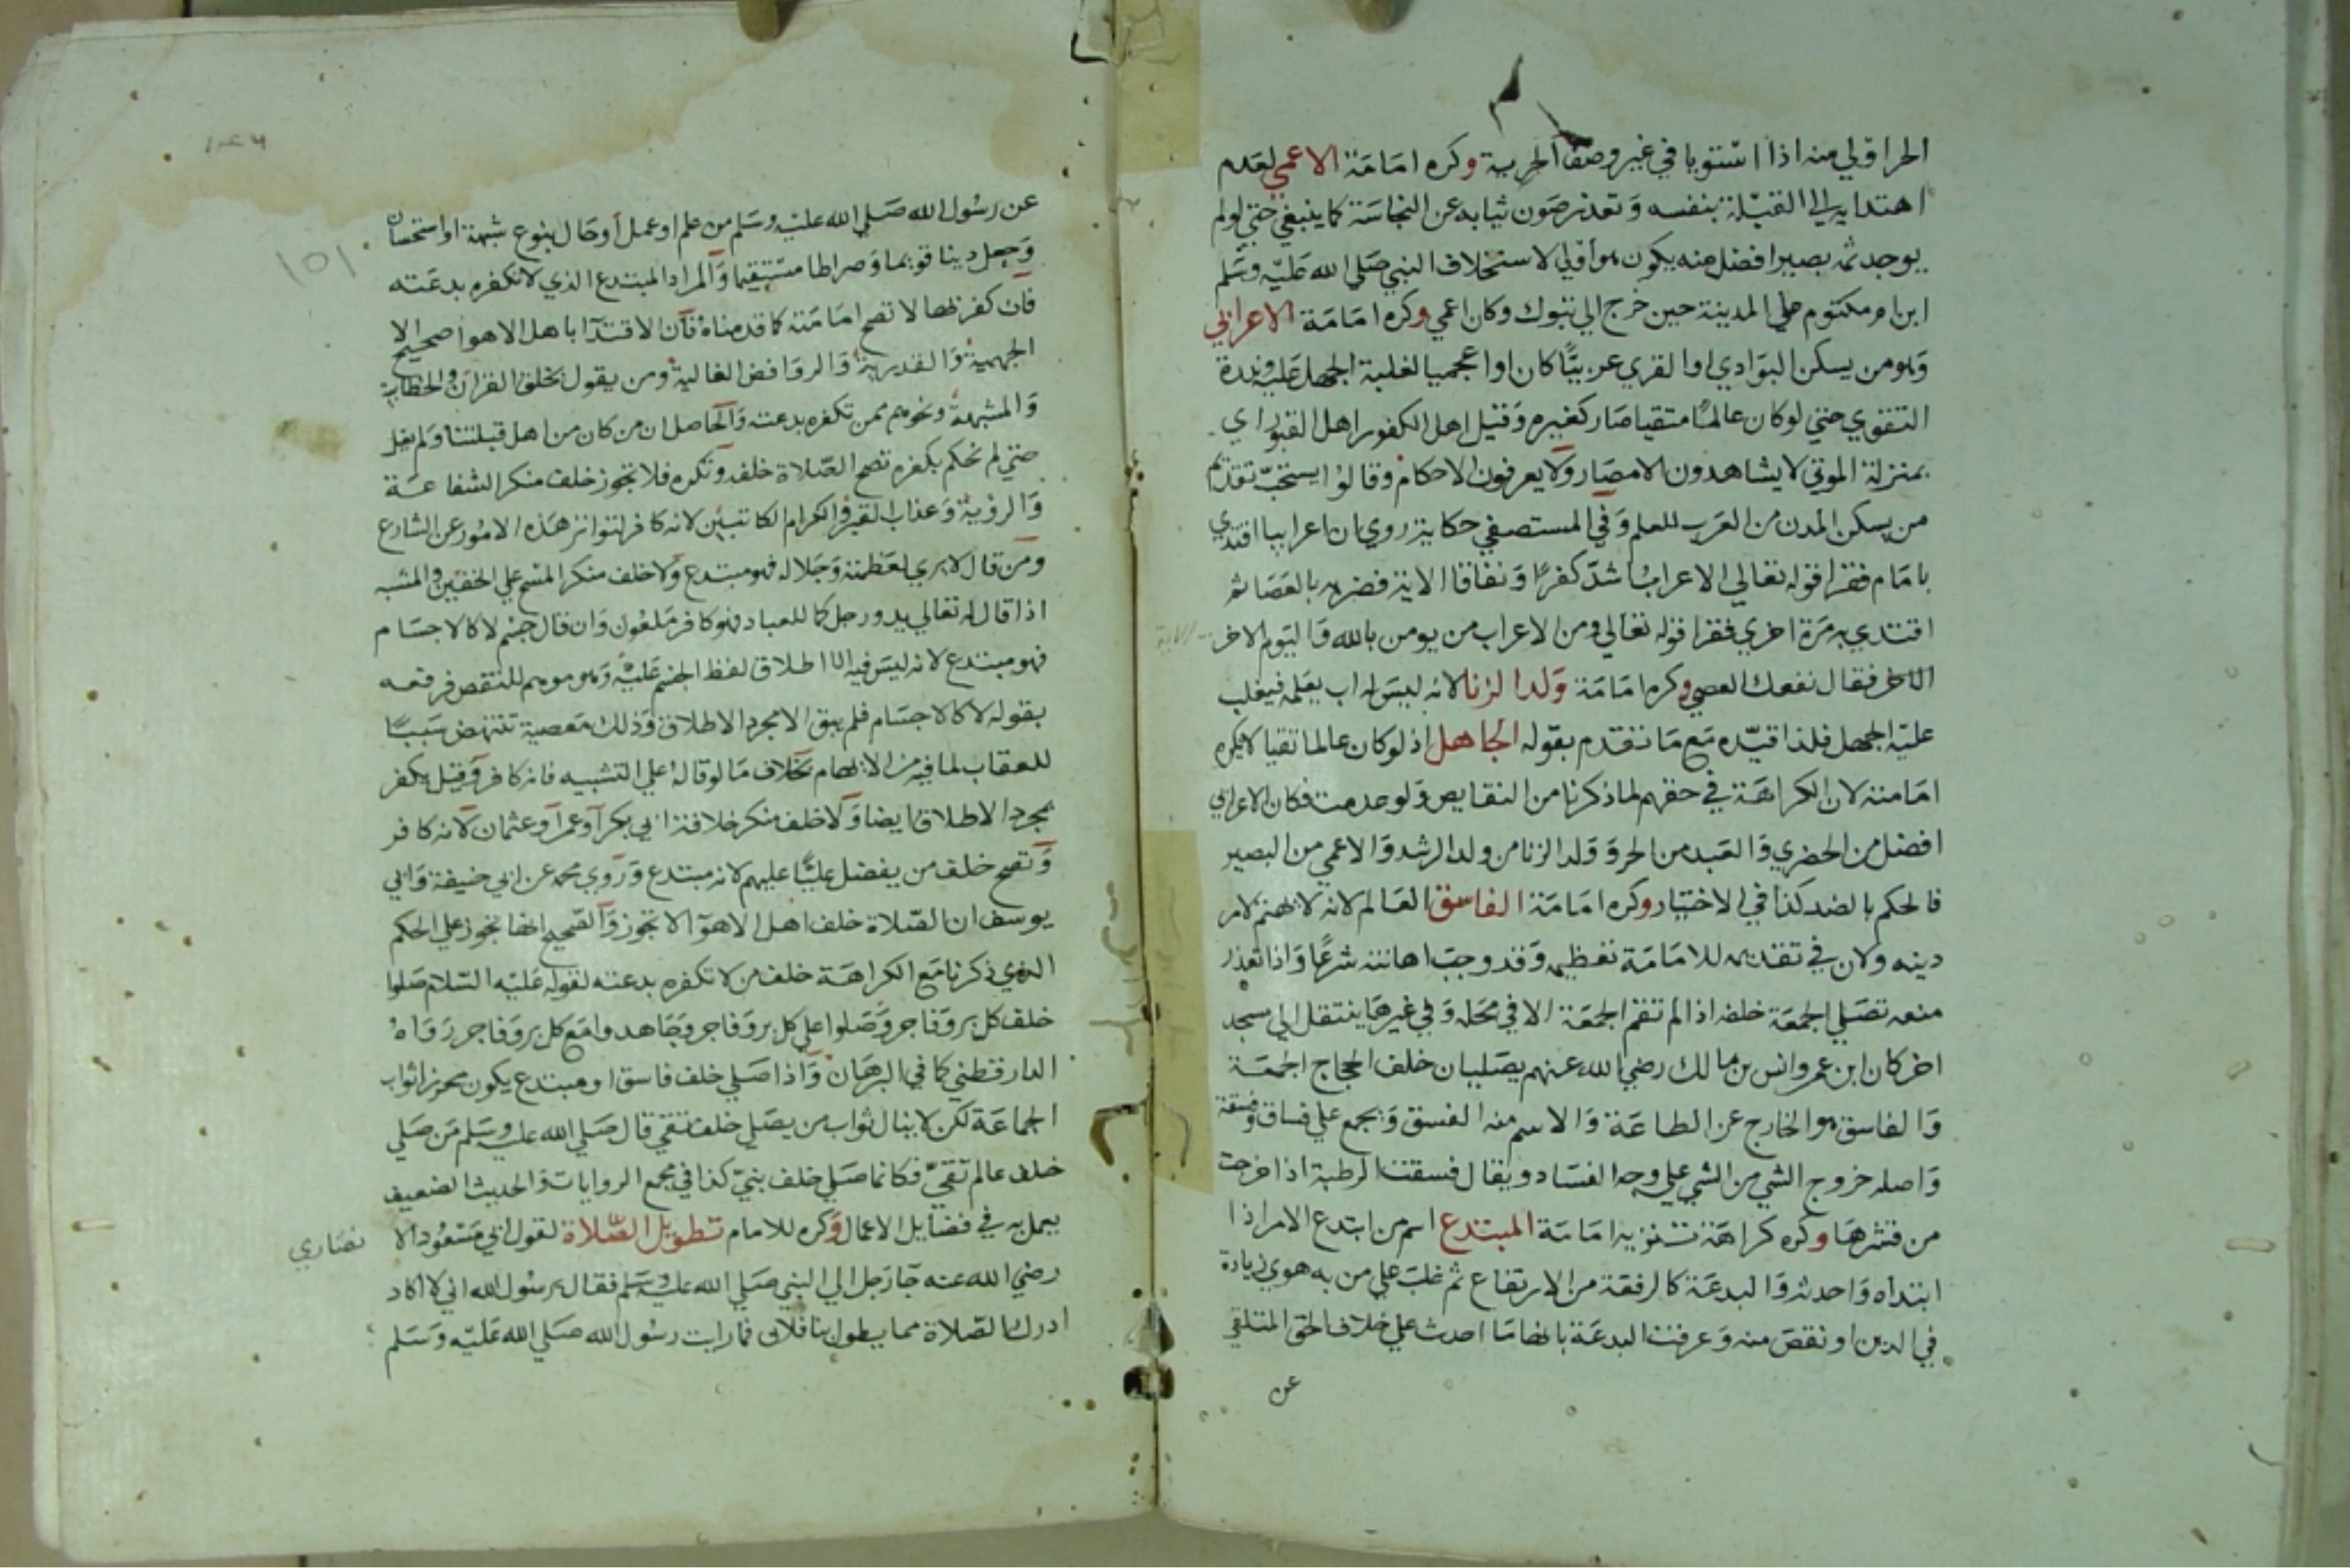 الحر اولي منه اذا استويا في غير وصف الحرية وكره امامة الاعمي لعدم
اهتدايه الي القبلة بنفسه وتعذر صون ثيابه عن النجاسة كما ينبغي حتي لو لم
يوجد ثمه بصيرا فضل منه يكون هو اولي لاستخلاف النبي صلي الله عليه وسلم
ابن ام مكتوم علي المدينة حين خرج الي تبوك وكان اعمي وكره امامة الاعرابي
وهو من يسكن البوادي او القري عربيا كان او اعجميا لغلبة الجهل عليه وندرة
التقوي حتي لو كان عالما متقيا صار كغيره وقيل اهل الكفور اهل القبور اي
بمنزلة الموتي لا يشاهدون الامصار ولا يعرفون الاحكام وقالوا يستحب تقديم
من يسكن المدن من العرب للعلم وفي المستصفي حكاية روي ان اعرابيا اقتدي
بامام فقرا قوله تعالي الاعراب اشد كفرا ونفاقا الاية فضربه بالعصا ثم
اقتدي به مرة اخري فقرا قوله تعالي ومن الاعراب من يومن بالله واليوم الاخر الاية
فقال نفعك العصي وكره امامة ولد الزنا لانه ليس له اب يعلمه فيغلب
عليه الجهل فلذا قيده مع ما تقدم بقوله الجاهل اذ لو كان عالما تقيا لا يكره
امامته لان الكراهة في حقهم لما ذكرنا من النقايص ولو عدمت فكان الاعرابي
افضل من الحضري والعبد من الحر وولد الزنا من ولد الرشد والاعمي من البصير
فالحكم بالضد كذا في الاختيار وكره امامة الفاسق العالم لانه لا يهتم لامر
دينه ولان في تقديمه للامامة تعظيمه وقد وجب اهانته شرعا واذا تعذر
منعه تصلي الجمعة خلفه اذا لم تقم الجمعة الا في محله وفي غيرها ينتقل الي مسجد
اخر كان ابن عمر وانس بن مالك رضي الله عنهم يصليان خلف الحجاج الجمعة
والفاسق هو الخارج عن الطاعة والاسم منه الفسق ويجمع علي فساق وفسقة
واصله خروج الشي من الشي علي وجه الفساد ويقال فسقت الرطبة اذا خرجت
من قشرها وكره كراهة تنزيه امامة المبتدع اسم من ابتدع الامر اذا
ابتداه واحدثه والبدعة كالرفعة من الارتفاع ثم غلب علي من به هوي زيادة
في الدين او نقص منه وعرفت البدعة بانها ما احدث علي خلاف الحق المتلقي
عن
١٥١
عن رسول الله صلي الله عليه وسلم من علم او عمل او حال بنوع شبهة او استحسان
وجعل دينا قويما وصراطا مستقيما والمراد المبتدع الذي لا تكفره بدعته
فان كفر بها لا تصح امامته كما قدمناه فان الاقتدا باهل الاهوا صحيح الا
الجهمية والقدرية والروافض الغالية ومن يقول بخلق القران والخطابية
والمشبهة ونحوهم ممن تكفره بدعته والحاصل ان من كان من اهل قبلتنا ولم يغل
حتي لم نحكم بكفره تصح الصلاة خلفه وتكره فلا تجوز خلف منكر الشفاعة
والرؤية وعذاب القبر والكرام الكاتبين لانه كافر لتواتر هذه الامور عن الشارع
ومن قال لا يري لعظمته وجلاله فهو مبتدع ولا خلف منكر المسح علي الخفين والمشبه
اذا قال له تعالي يد ورجل كما للعباد فهو كافر ملعون وان قال جسم لا كالاجسام
فهو مبتدع لانه ليس فيه الا اطلاق لفظ الجسم عليه وهو موهم للنقص فرفعه
بقوله لا كالاجسام فلم يبق الا مجرد الاطلاق وذلك معصية تنتهض سببا
للعقاب لما فيه من الايهام بخلاف ما لو قاله علي التشبيه فانه كافر وقيل يكفر
بمجرد الاطلاق ايضا ولا خلف منكر خلافة ابي بكر او عمر او عثمان لانه كافر
وتصح خلف من يفضل عليا عليهم لانه مبتدع وروي محمد عن ابي حنيفة وابي
يوسف ان الصلاة خلف اهل الاهوا لا تجوز والصحيح انها تجوز علي الحكم
الذي ذكرنا مع الكراهة خلف من لا تكفره بدعته لقوله عليه السلام صلوا
خلف كل بر وفاجر وصلوا علي كل بر وفاجر وجاهدوا مع كل بر وفاجر رواه
الدارقطني كما في البرهان واذا صلي خلف فاسق او مبتدع يكون محرزا ثواب
الجماعة لكن لا ينال ثواب من يصلي خلف تقي قال صلي الله عليه وسلم من صلي
خلف عالم تقي فكانما صلي خلف نبي كذا في مجمع الروايات والحديث الضعيف
يعمل به في فضايل الاعمال وكره للامام تطويل الصلاة لقول ابي مسعود الا نصاري
رضي الله عنه جا رجل الي النبي صلي الله عليه وسلم فقال يرسول الله اني لا اكاد
ادرك الصلاة مما يطول بنا فلان فما رايت رسول الله صلي الله عليه وسلم